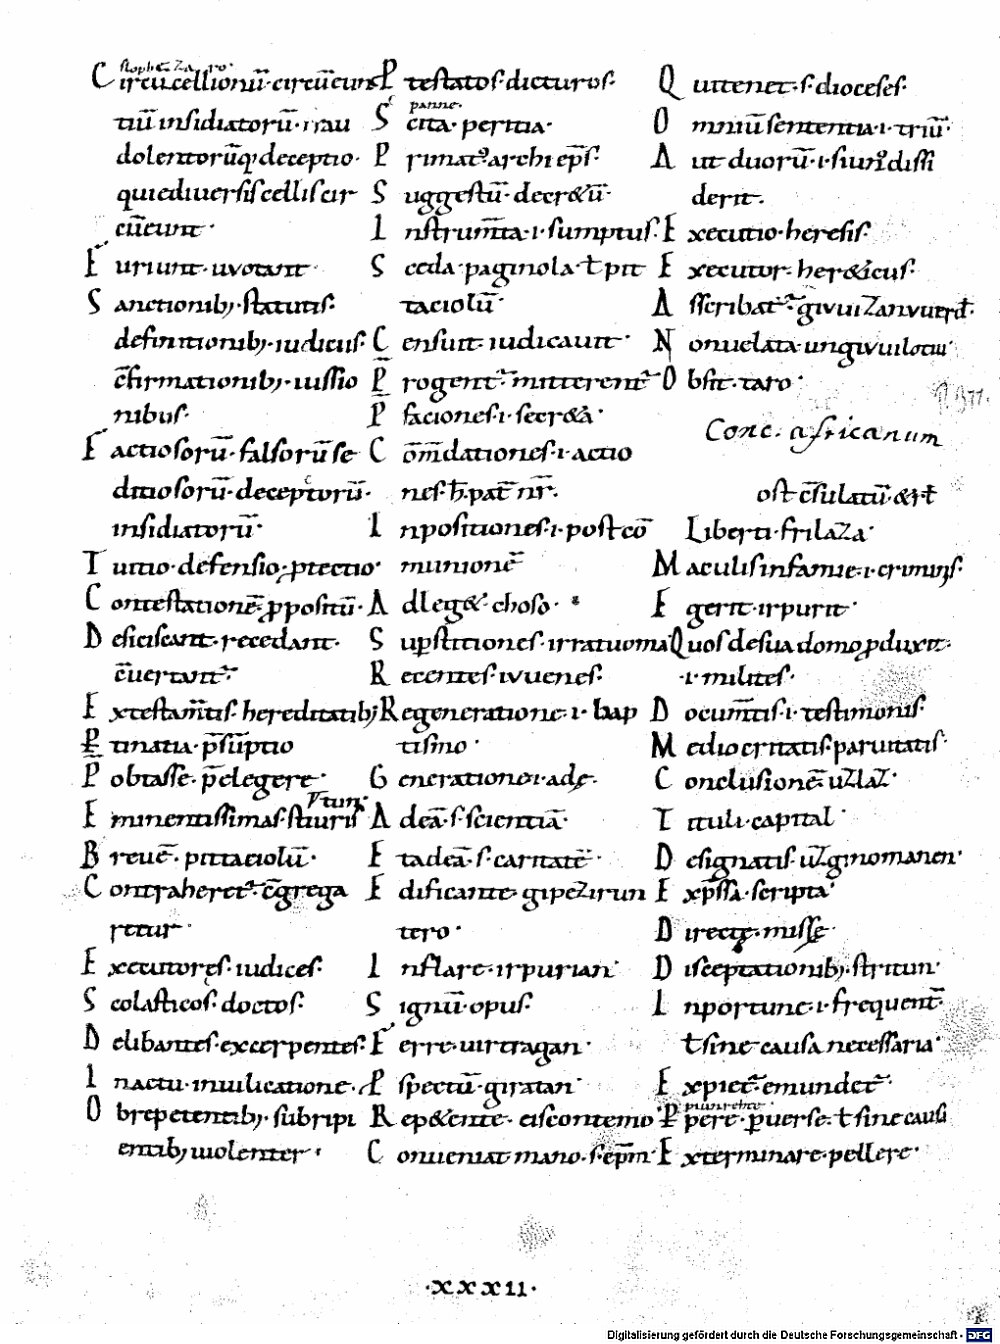 stophezzaro·
Circūcellionū· circūeun
tiū insidiatorū· ı rau
dolentorūq; deceptio·
qui ediuersis cellis cir
cūeunt·
Feriunt· uuotant·
Sanctionib;· statutis·
definitionib;· iudiciis·
c̄firmationib;· iussio
nibus·
Factiosorū· falsorū· se
ditiosorū· deceptorū·
insidiatorū·
Tuitio· defensio· ꝓtectio·
Contestationē· ꝓpositū·
Desiciscant· recedant·
c̄uertant̄·
Extestam̄tis· hereditatib;
P̄tinatia· p̄sūptio
P̄obtasse· p̄elegere·
Eminentissimas·
Breuē· pittaciolū·
Contraheret̄· c̄grega
retur·
Executores· iudices·
Scolasticos· doctos·
Delibantes· excerpentes·
Inactu· inuilicatione·
Obrepetentib;· subripi
entib; uiolenter·
Ptestatos· dicturos·
panne·
Scita· peritia·
Primat᷒· archiep̄s·
Suggestū· decr&ū·
Instrum̄ta· ı· sumptus·
Sceda· paginola· ł pit
taciolū·
Censuit· iudicauit·
P̄rogent̄· mitterent̄
P̄faciones· ı· secr&a·
Com̄dationes· ı· actio
nes· h̄· pat̄ nr̄·
Inpositiones· ı· post cō
munionē
Adleg&· choso·
Sup̄stitiones· irratuoma
Recentes· iuuenes·
Regeneratione· ı· bap
tismo·
Generationoı· adę·
Adeā· s· scientiā·
Etadeā· s· caritatē·
Edificante· gipezirun
tero·
Inflare· irpurian·
Signū· opus·
Ferre· uirtragan·
P̄spectū· giratan·
Rep&ente· eiscontemo
Conueniat mano· s· ep̄m·
Quitenet· s· dioceses·
Omniū sententia· ı· triū·
Aut duorū· ı· siunꝰ dissi
derit·
Executio· heresis·
Executor· her&icus·
Asscribat̄·
Nonuelata· ungiuuilotiu·
Obsit· taro·
Conc. africanum
ost c̄sulatū· &rł
Liberti· frilaza·
Maculis infamie· ı· criminis·
Egerit· irpurit·
Quos desua domo ꝓduxit·
·ı· milites·
Docum̄tis· ı· testimoniis·
Mediocritatis· paruitatis·
Conclusionē· uzlaz·
Tituli· capital·
Designatis· uzginomanen·
Exp̄ssa· scripta·
Directę· missę·
Disceptationib;· stritun·
Inportune· ı· frequent̄
ł sine causa necessaria·
Expiet̄· emundet̄·
P̄pere· ꝑuerse· ł sine causi
Exterminare· pellere·
·xxxii·
Digitalisierung gefördert durch die Deutsche Forschungsgemeinschaft - DFG